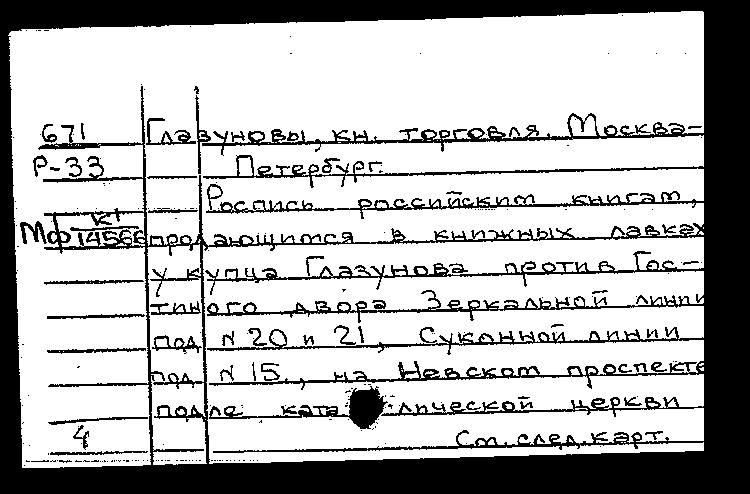 671
Р-33
Мф К1
14566
4
Глазуновы, кн. торговля. Москва-
Петербург.
Роспись российским книгам,
продающимся в книжных лавках
у купца Глазунова против Гос-
тиного двора Зеркальной линии
под N 20 и 21, Суконной линии
под N 15., на Невском проспекте
подле като лической церкви
См. след. карт.